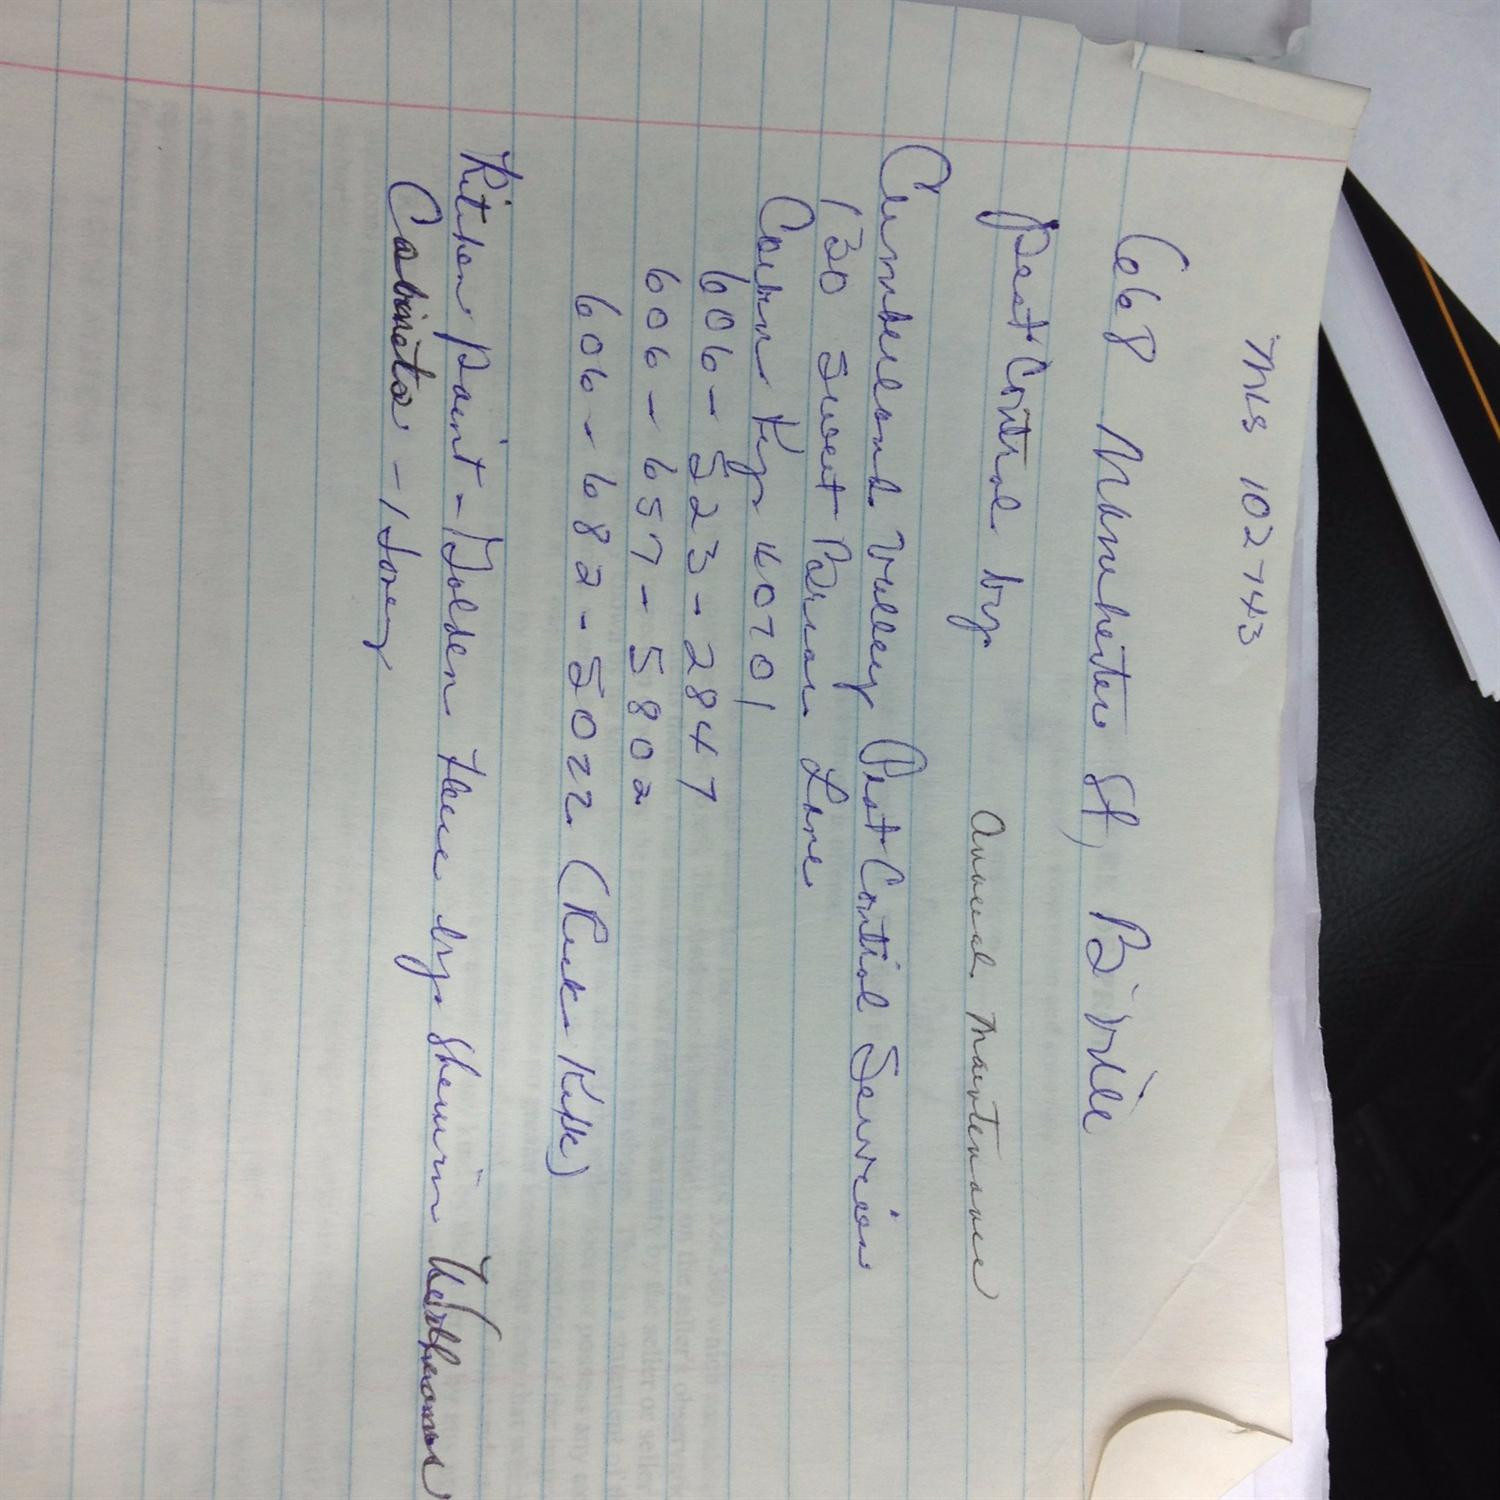 MLS 102743
668 Manchester St, B'ville
Pest Control by Annual Maintenance
Cumberland Valley Pest Control Services
130 Sweet Persian Lane
Corbin Ky 40701
606-523-2847
606-657-5802
606-682-5022 (Rick Kirk)
Kitchen paint - Golden by Sherwin Williams
Cabinets - Ivory